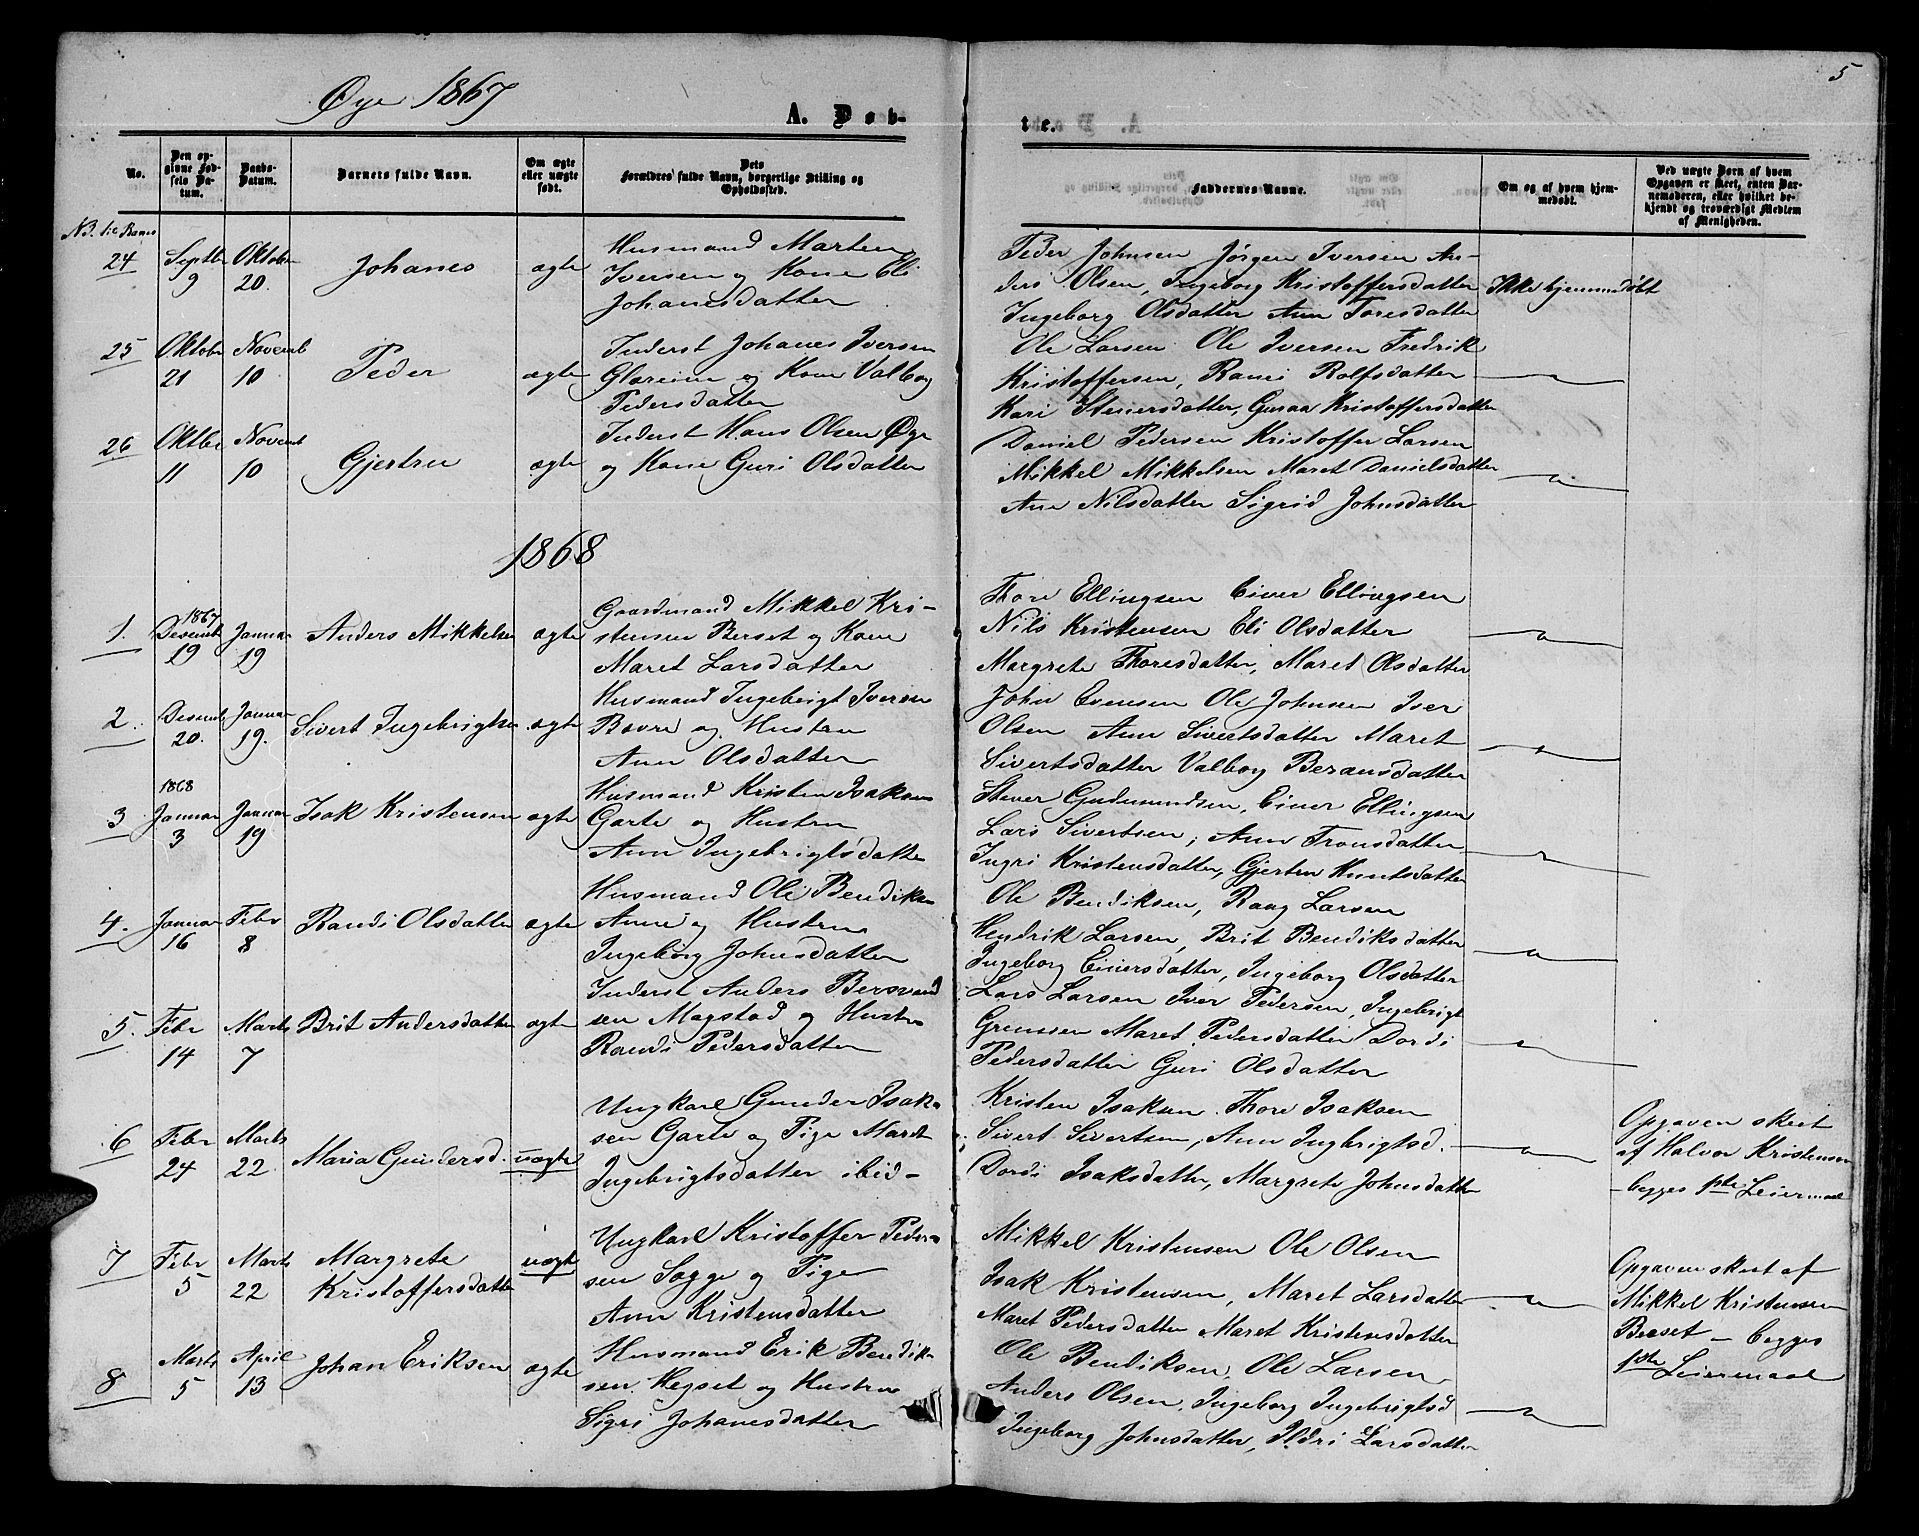 Øye 1867
A. Døb-
te.
5
No.
Den op-
givne Fød-
sels Da-
tum.
Daabs-
Datum.
Barnets fulde Navn.
Om ægte
eller uægte
født.
Dets
Forældres fulde Navn, borgerlige Stilling og
Opholdssted.
Faddernes Navne.
Om og af hvem hjem-
medøbt.
Ved uægte Børn af hvem
Opgaven er skeet, enten Bar-
nemoderen, eller hvilket be-
kjendt og troværdigt Medlem
af Menigheden.
24
Septbr
9
Oktober
20.
Johanes
ægte
Husmand Marten
Iversen og Kone Eli
Johanesdatter
Peder Johnsen Jørgen Iversen An-
ders Olsen, Ingeborg Kristoffersdatter
Ingeborg Olsdatter Ann Toresdatter
Ikke hjemmedøbt
25
Oktobr
21
Novemb
10
Peder
ægte
Inderst Johanes Iversen
Glæreim og Kone Valbog
Pedersdatter
Ole Larsen Ole Iversen Fredrik
Kristoffersen, Ranei Rolfsdatter
Kari Steiersdatter, Guraa Kristoffersdatter
26
Oktber
11
Novemb
10
Gjertru
ægte
Inderst Hans Olsen Øye
og Kone Guri Olsdatter
Daniel Pedersen Kristoffer Larsen
Mikkel Mikkelsen Maret Danielsdatter
Ane Nilsdatter Sigrid Johnsdatter
1868
1.
1867
Desemb
19
Januar
19
Anders Mikkelsen
ægte
Gaardmand Mikkel Kri-
stensen Bærset og Kone
Maret Larsdatter
Thore Ellingsen Einer Ellingsen
Nils Kristensen Eli Olsdatter
Margrete Thoresdatter, Maret Olsdatter
2.
Desemb
20.
Januar
19.
Sivert Ingebrigtsen
ægte
Husmand Ingebrigt Iversen
Bævre og Hustru
Ann Olsdatter
John Evensen Ole Johnsen Iver
Olsen Ann Sivertsdatter Maret
Sivertsdatter Valbog Beransdatter
3
1868
Januar
3
Januar
19
Isak Kristensen
ægte
Husmand Kristen Isaksen
Garte og Hustru
Ann Ingebrigtsdatter
Stener Gudmundsen, Einer Ellingsen
Lars Sivertsen, Ann Tronsdatter
Ingri Kristensdatter, Gjertru Knutsdatter
4.
Januar
16
Febr
8
Randi Olsdatter
ægte
Husmand Ole Bendiksen
Aune og Hustru
Ingeborg Johnsdatter
Ole Bendiksen, Roag Larsen
Hendrik Larsen, Brit Bendiksdatter
Ingeborg Einersdatter, Ingeborg Olsdatter
5.
Febr
14
Marts
7
Brit Andersdatter
ægte
Inderst Anders Bersvend
sen Mogstad og Hustru
Randi Pedersdatter
Lars Larsen Iver Pedersen, Ingebrigt
Maret Pedersdatter Dordi
Pedersdatter Guri Olsdatter
6
Febr
24
Marts
22
Maria Gundersd.
uægte
Ungkarl Gunder Isak-
sen Garte og Pige Maret
Ingebrigtsdatter ibid-
Kristen Isaksen Thore Isaksen
Sivert Sivertsen, Ann Ingbrigtsd.
Dordi Isaksdatter, Margrete Johnsdatter
Opgaven skeet
af Halvor Kristensen
- begges 1ste Leiermaal
7
Febr
5
Marts
22
Margrete
Kristoffersdatter
uægte
Ungkarl Kristoffer Peder-
sen Sogge og Pige
Ann Kristensdatter
Mikkel Kristensen Ole Olsen
Isak Kristensen, Maret Larsdatter
Maret Pedersdatter Maret Kristensdatter
Opgaven skeet af
Mikkel Kristensen
Bærset - begges
1ste Leiermaal
8
Marts
5
April
13
Johan Eriksen
ægte
Husmand Erik Bendik-
sen Hegset og Hustru
Sigri Johanesdatter
Ole Bendiksen, Ole Larsen
Anders Olsen, Ingeborg Ingebrigtsd
Ingeborg Johnsdatter, Ildri Larsdatter